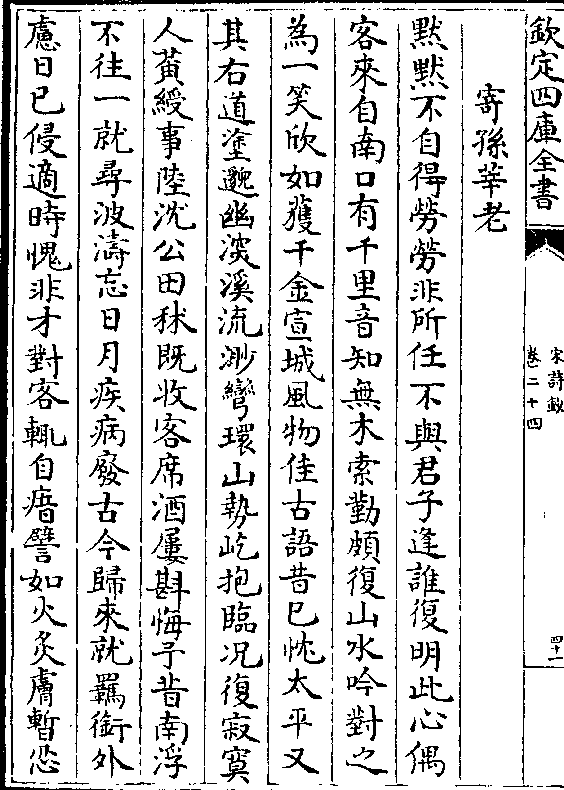 欽定四庫全書
宋詩鈔
卷二十四
四十一
寄孫莘老
黙黙不自得勞勞非所任不與君子逢誰復明此心偶
客來自南口有千里音知無木索勤頗復山水吟對之
為一笑欣如獲千金宣城風物佳古語昔已忱太平又
其右道塗邈幽深溪流渺彎環山勢屹抱臨况復寂寞
人黃綬事陸沈公田秫既收客席酒屢斟悔予昔南浮
不往一就尋波濤忘日月疾病廢古今歸來就羈銜外
慮日已侵適時愧非才對客輒自瘖譬如火炙膚暫忍